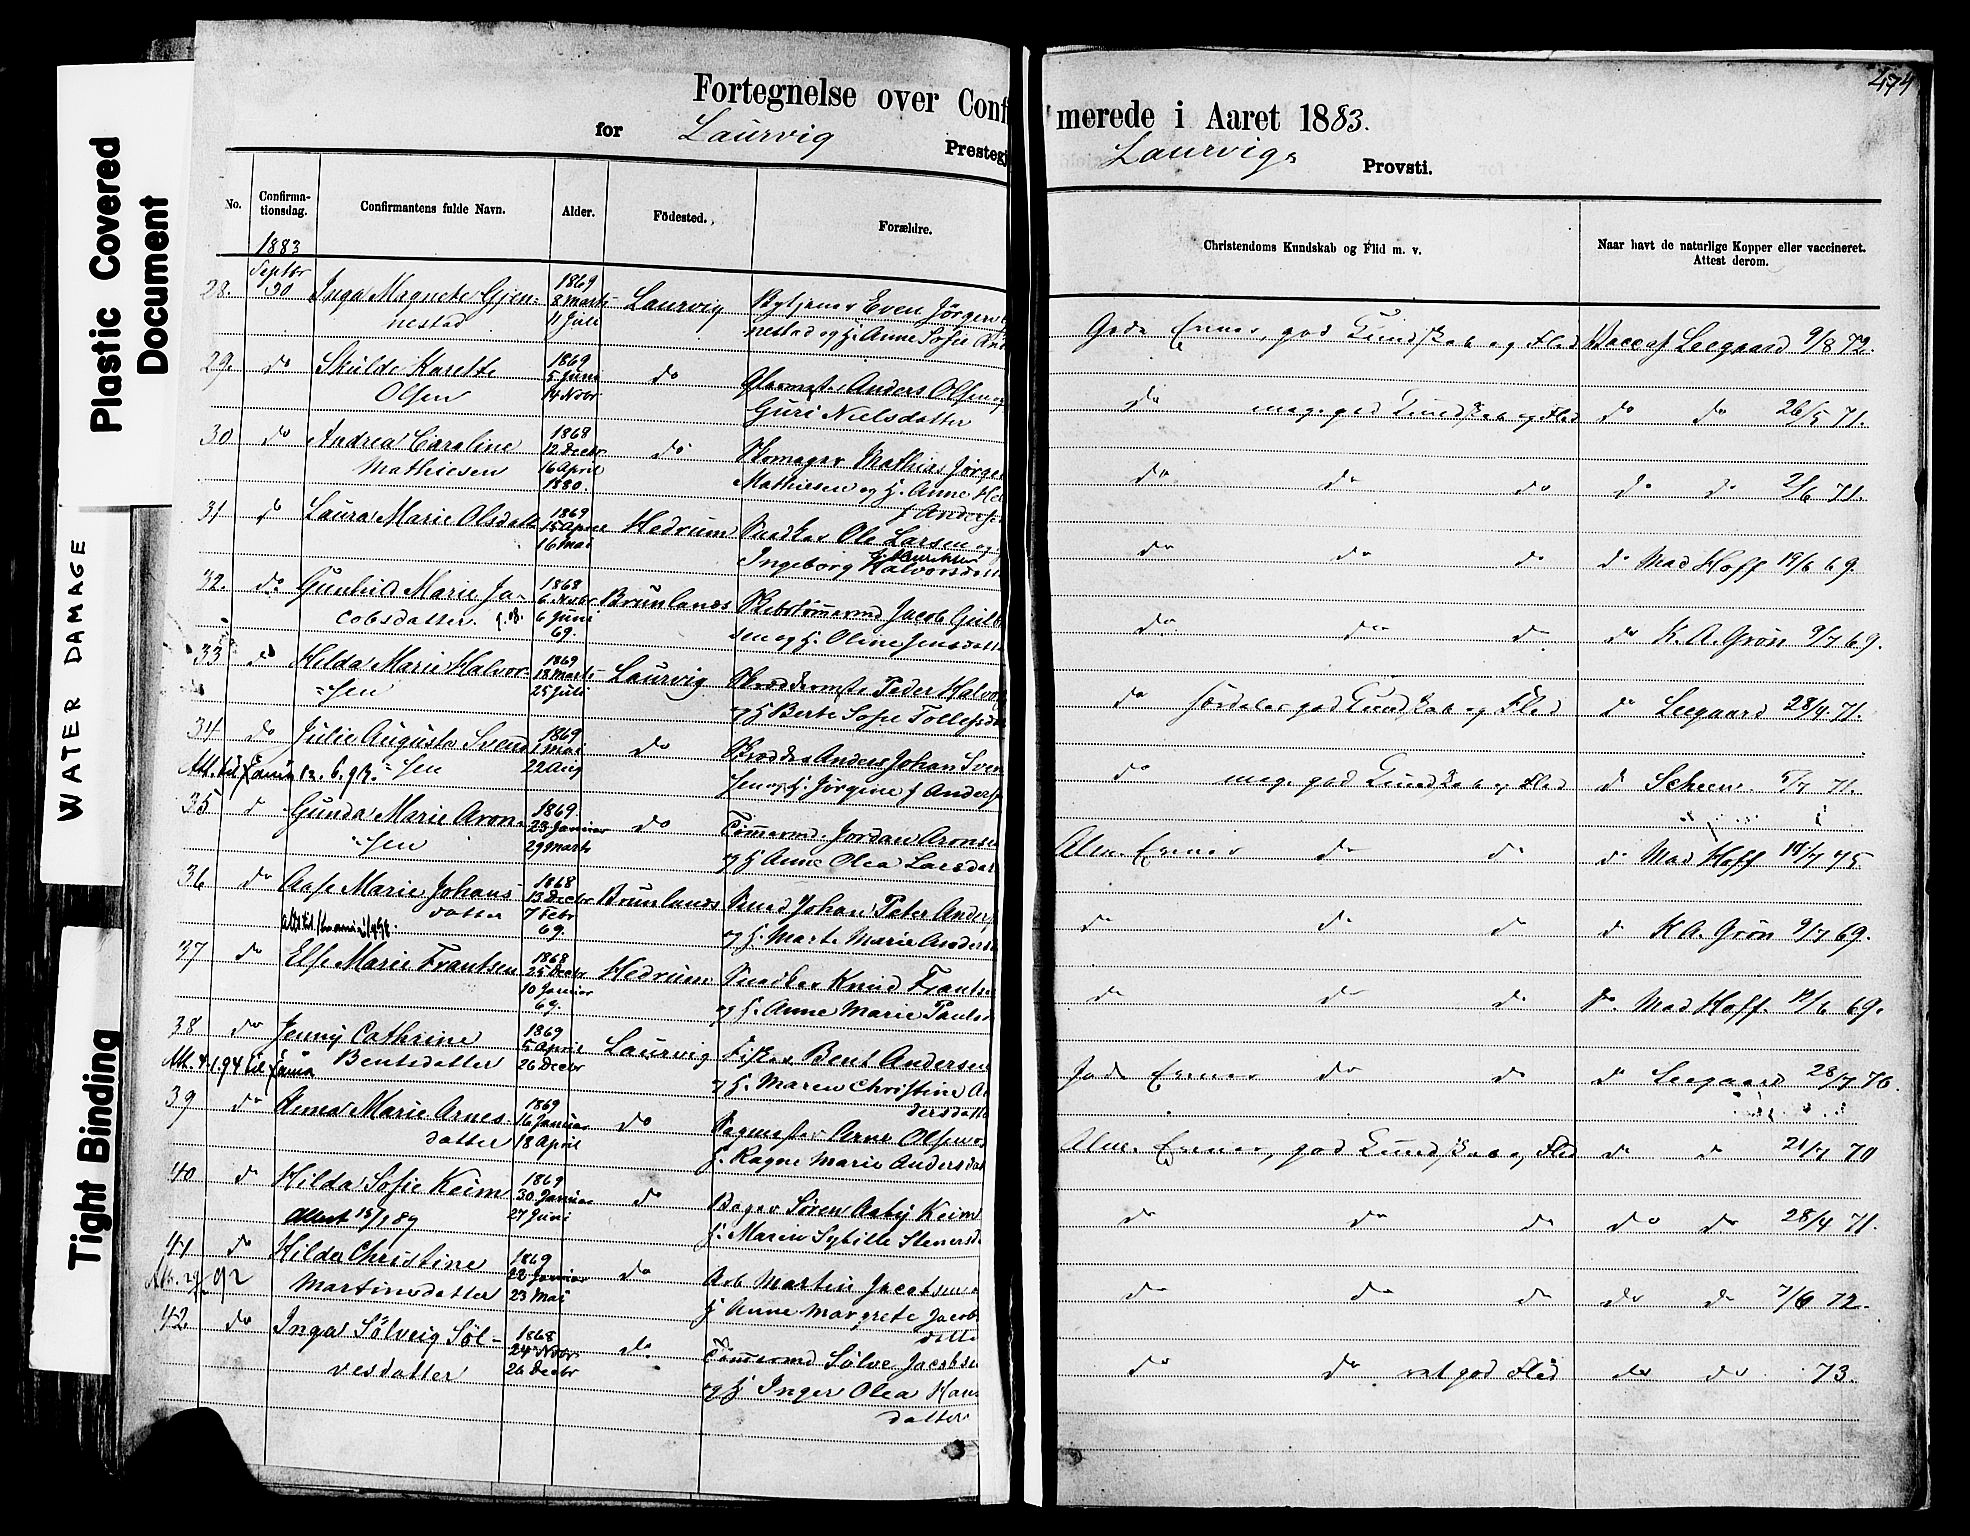 Plastic Covered
Document
WATER DAMAGE
Tight Binding
Fortegnelse over Conf
for Laurvig Prestegj
No.
Confirma-
tionsdag.
Confirmantens fulde Navn.
Alder.
Födested.
Forældre.
1883
Septbr
28. 30 Inga Magnete Gjen- 1869 8 Marts Laurvig Even Jörgen
nestad 11 Juli nestad og H. Anne Sofie And
29. do Skulde Karette 1869 5 Juni do Anders Olsen og
Olsen 14 Novbr Guri Nielsdatter
30 do Andrea Caroline 1868 12 Decbr do Skomager Mathias Jörgen
Mathiesen 16 April 1880. Mathiesen og H. Anne He
f Anders
31 do Laura Marie Olsdatter 1869 15 April Hedrum Snedker Ole Larsen og
16 Mai Ingeborg Halvorsdatter
32. do Gunhild Marie Ja- 1868 6 Novbr Brunlanes Jacob Gulb
cobsdatter. 6 Juni 69. sen og H. Oline Jensdatter
33 do Hilda Marie Halvor- 1869 18 Marts Laurvig Peder Halvor
=sen 25 Juli og H Berte Sofie Tollefsdat
34 do Julie Augusta Svend 1869 1 Mai do Anders Johan Sven
=sen 22 Aug sen og H. Jörgine f Anders
35 d Gunda Marie Aron- 1869 23 Januar do Tömmermd. Jordan Aronsen
=sen 29 Marts og H Anne Olea Larsdat
36 do Aase Marie Johans- 1868 13 Decbr Brunlanes Smed Johan Peter Anders
datter 7 Febr 69. og H. Marte Marie Anders
37 do Else Marie Frantsen 1868 25 Decbr Hedrum Snedker Knud Frantsen
10 Januar 69. og H. Anne Marie Pauls
38 do Jenny Cathrine 1869 5 April Laurvig Fisker Bent Andersen
Att. 4.1.94 til Bentsdatter 26 Decbr og H. Maren Christine An
dersdatter
39 do Anna Marie Arnes 1869 16 Januar do Arne Olsen og
datter 18 April H. Ragne Marie Andersdat
40 do Hilda Sofie Keim 1869 30 Januar do Bager Sören Aaby Keim
Attest 15/1 89 27 Juni H. Maren Sybille Stenersd
41 do Hilda Christine 1869 22 Januar do Arb Martin Jacobsen
92 Martinsdatter 23 Mai H Anne Margrete Jacobs
datter
42. do Inga Sölveig Söl- 1868 24 Novbr do Tömmermd Sölve Jacobsen
vesdatter 26 Decbr og H Inger Olea Hans
datter
474
merede i Aaret 1883.
Laurvigs Provsti.
Christendoms Kundskab og Flid m. v.
Naar havt de naturlige Kopper eller vaccineret.
Attest derom.
Gode Evner, god Kundskab og Flid Vacc af Leegaard 9/8 72.
do meget god Kundskab og Flid do do 26/5 71.
do do do do do 2/6 71.
do do do do Mad Hoff 19/6 69.
do do do do K. A. Grön 9/7 69.
do særdeles god Kundskab og Flid do Leegaard 28/4 71.
do meget god Kundskab og Flid d Scheen 5/7 71.
Alm. Evner do do d Mad Hoff 19/7 75
do do do d K A. Grön 9/7 69.
do do do do Mad Hoff. 19/6 69.
Gode Evner do do d Leegaard 28/7 76.
Alm. Evner, god Kundskab og Flid do d 21/7 70
do do do do do 28/4 71.
do do do do do 7/6 72.
do do god Flid do do 73.